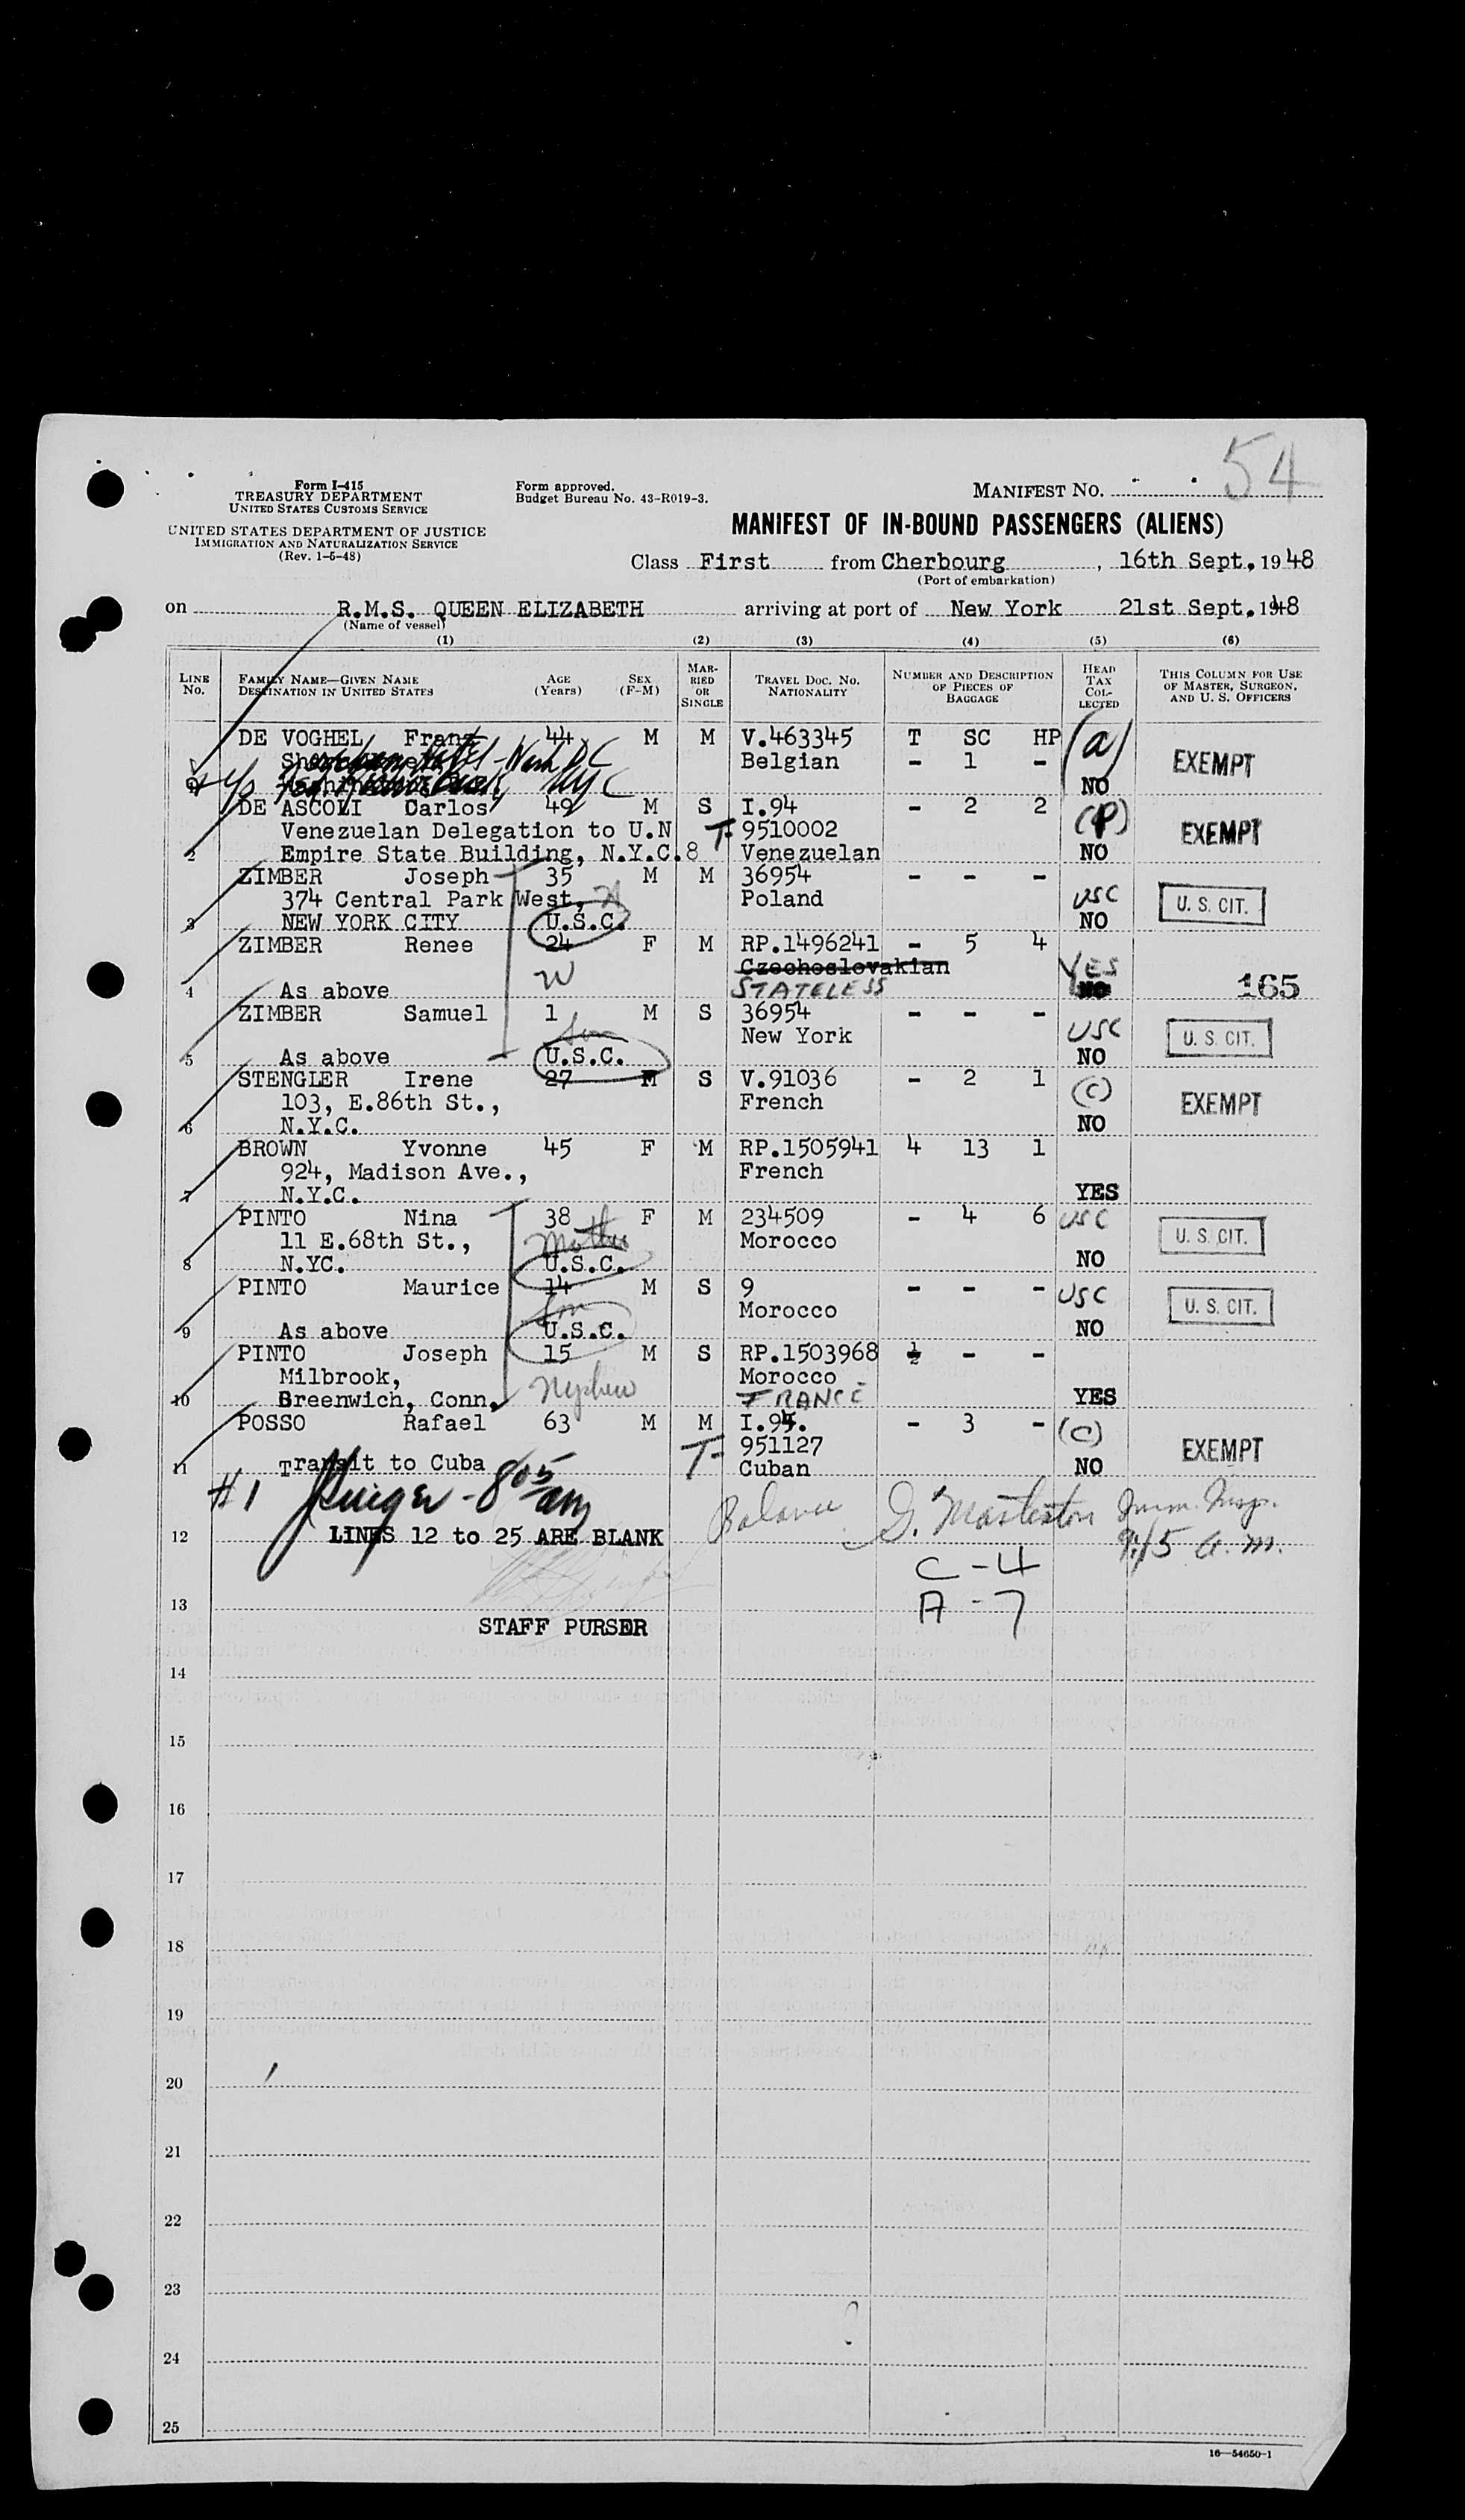 54
Form I-415
TREASURY DEPARTMENT
UNITED STATES CUSTOMS SERVICE
UNITED STATES DEPARTMENT OF JUSTICE
IMMIGRATION AND NATURALIZATION SERVICE
(Rev. 1-5-48)
Form approved.
Budget Bureau No. 43-R019-3.
MANIFEST NO.
MANIFEST OF IN-BOUND PASSENGERS (ALIENS)
Class First from Cherbourg, 16th Sept, 1948
(Port of embarkation)
on R.M.S. QUEEN ELIZABETH arriving at port of New York 21st Sept, 1948
(Name of vessel)
(1) (2) (3) (4) (5) (6)
LINE No. FAMILY NAME—GIVEN NAME DESTINATION IN UNITED STATES AGE (Years) SEX (F-M) MARRIED OR SINGLE TRAVEL DOC. NO. NATIONALITY NUMBER AND DESCRIPTION OF PIECES OF BAGGAGE HEAD TAX COLLECTED THIS COLUMN FOR USE OF MASTER, SURGEON, AND U. S. OFFICERS
DE VOGHEL Franz 44 M M V.463345 T SC HP (a)
Hotel - Wash DC Belgian - 1 - EXEMPT
1 NYC NO
DE ASCOLI Carlos 49 M S I.94 - 2 2 (P)
Venezuelan Delegation to U.N T- 9510002 EXEMPT
2 Empire State Building, N.Y.C.8 Venezuelan NO
ZIMBER Joseph 35 M M 36954 - - -
374 Central Park West, H Poland USC U. S. CIT.
3 NEW YORK CITY U.S.C. NO
ZIMBER Renee 24 F M RP.1496241 - 5 4
W Czechoslovakian YES
4 As above STATELESS NO 165
ZIMBER Samuel 1 M S 36954 - - -
Son New York USC U. S. CIT.
5 As above U.S.C. NO
STENGLER Irene 27 M S V.91036 - 2 1
103, E.86th St., French (C) EXEMPT
6 N.Y.C. NO
BROWN Yvonne 45 F M RP.1505941 4 13 1
924, Madison Ave., French
7 N.Y.C. YES
PINTO Nina 38 F M 234509 - 4 6 USC
11 E.68th St., Mother Morocco U. S. CIT.
8 N.YC. U.S.C. NO
PINTO Maurice 14 M S 9 - - - USC
Son Morocco U. S. CIT.
9 As above U.S.C. NO
PINTO Joseph 15 M S RP.1503968 - -
Milbrook, Nephew Morocco
10 Breenwich, Conn. FRANCE YES
POSSO Rafael 63 M M I.94. - 3 - (C)
T- 951127 EXEMPT
11 Transit to Cuba Cuban NO
#1 - 8 05 am Balance Imm. Insp.
12 LINES 12 to 25 ARE BLANK 9.15 a.m.
C - 4
13 A - 7
STAFF PURSER
14
15
16
17
18
19
20
21
22
23
24
25
16—54650-1